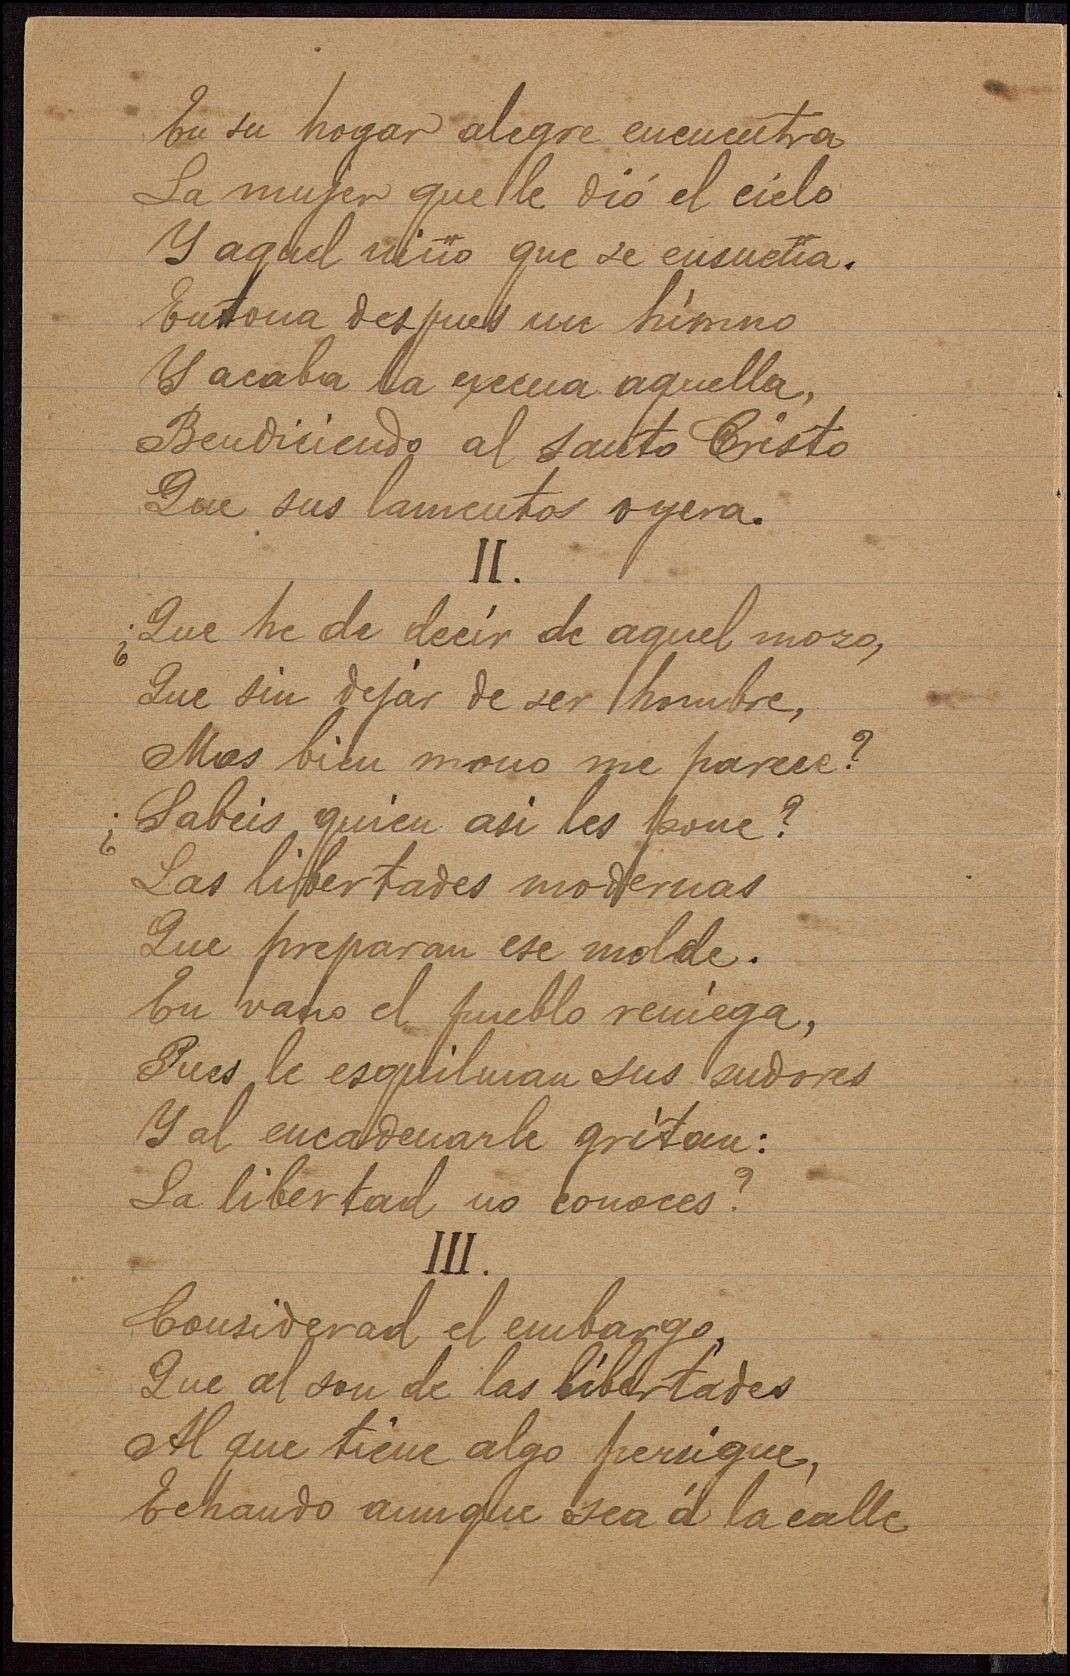 En su hogar alegre encuentra
La mujer que le dió el cielo
Y aquel niño que se ensueña.
Entona despues un himno
Y acaba la excena aquella,
Bendiciendo al santo Cristo
Que sus lamentos oyera.
II.
¿Que he de decir de aquel mozo,
Que sin dejar de ser hombre,
Mas bien mono me parece?
¿Sabeis quien asi les pone?
Las libertades modernas
Que preparan ese molde.
En vano el pueblo reniega,
Pues le esquilman sus sudores
Y al encadenarle gritan:
La libertad no conoces?
III.
Considerad el embargo,
Que al son de las libertades
Al que tiene algo persigue,
Echando aunque sea á la calle